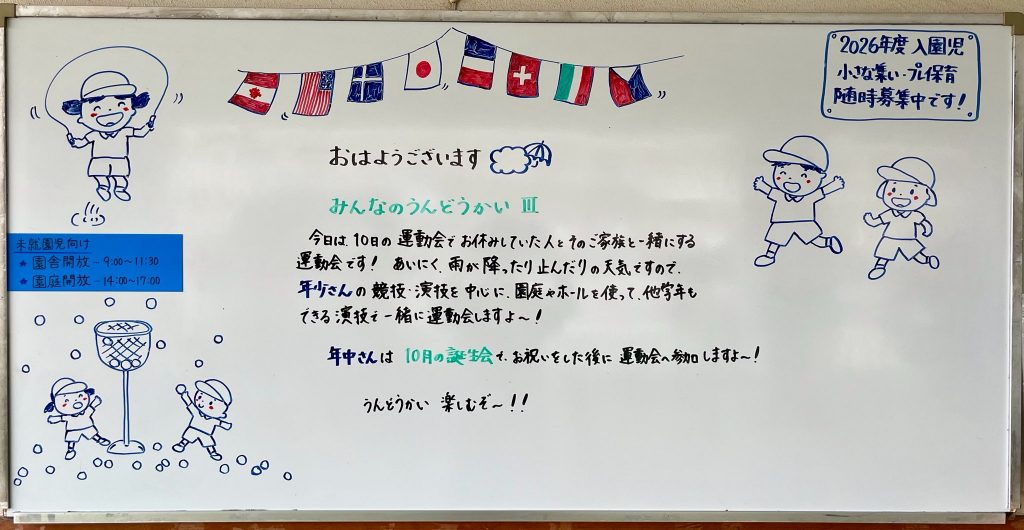 2026年度 入園児
小さな集い・プレ保育
随時募集中です!
おはようございます
みんなのうんどうかい Ⅲ
今日は、10日の運動会でお休みしていた人とそのご家族と一緒にする
運動会です! あいにく、雨が降ったり止んだりの天気ですので、
年少さんの競技・演技を中心に、園庭やホールを使って、他学年も
できる演技で一緒に運動会しますよ〜!
年中さんは 10月の誕生会で、お祝いをした後に 運動会へ参加しますよ〜!
うんどうかい 楽しむぞ〜!!
未就園児向け
★ 園舎開放…9:00〜11:30
★ 園庭開放…14:00〜17:00